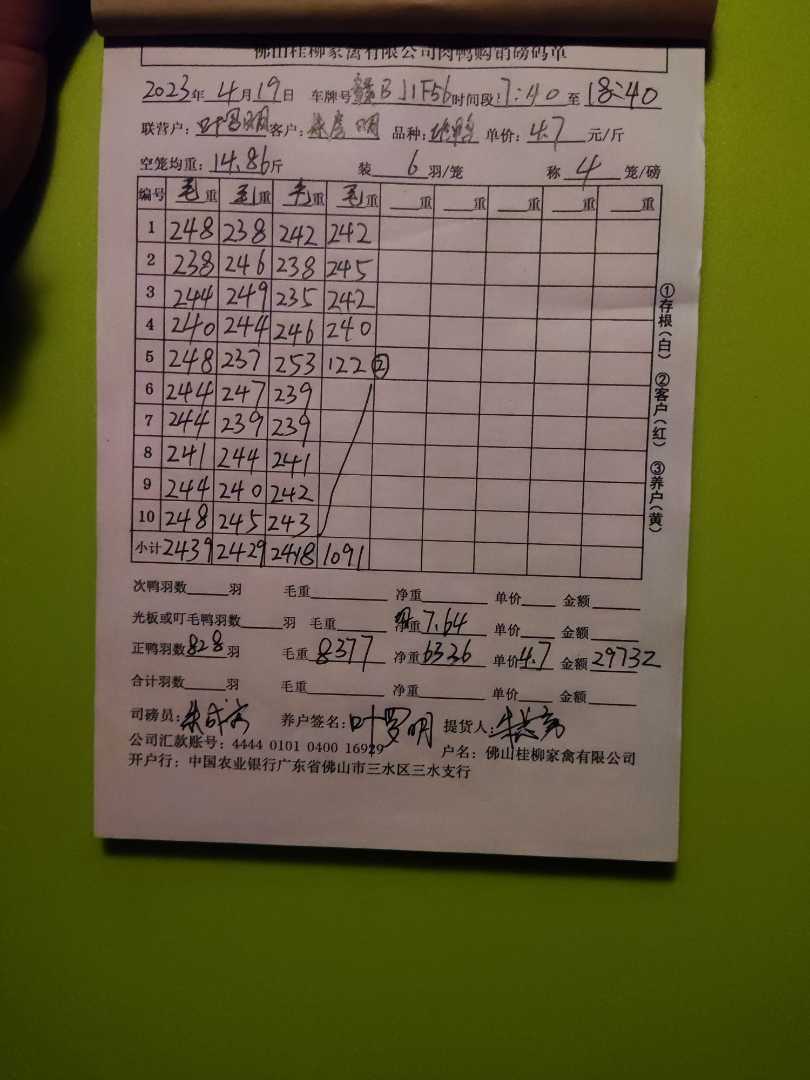 佛山桂柳家禽有限公司肉鸭购销磅码单
2023年 4月19日 车牌号 赣B J1F56 时间段:17:40 至 18:40
联营户: 叶罗明 客户: 品种: 单价: 4.7 元/斤
空笼均重: 14.86斤 装 6 羽/笼 称 4 笼/磅
编号 毛重 毛重 毛重 毛重 重 重 重 重 重
1 248 238 242 242
2 238 246 238 245
3 244 249 235 242
4 240 244 246 240
5 248 237 253 122 ②
6 244 247 239
7 244 239 239
8 241 244 241
9 244 240 242
10 248 245 243
小计 2439 2429 2418 1091
次鸭羽数 羽 毛重 净重 单价 金额
光板或叮毛鸭羽数 羽 毛重 净重 7.64 单价 金额
正鸭羽数 828 羽 毛重 8377 净重 6326 单价 4.7 金额 29732
合计羽数 羽 毛重 净重 单价 金额
司磅员: 养户签名: 叶罗明 提货人:
公司汇款账号: 4444 0101 0400 16929 户名: 佛山桂柳家禽有限公司
开户行: 中国农业银行广东省佛山市三水区三水支行
①存根(白) ②客户(红) ③养户(黄)